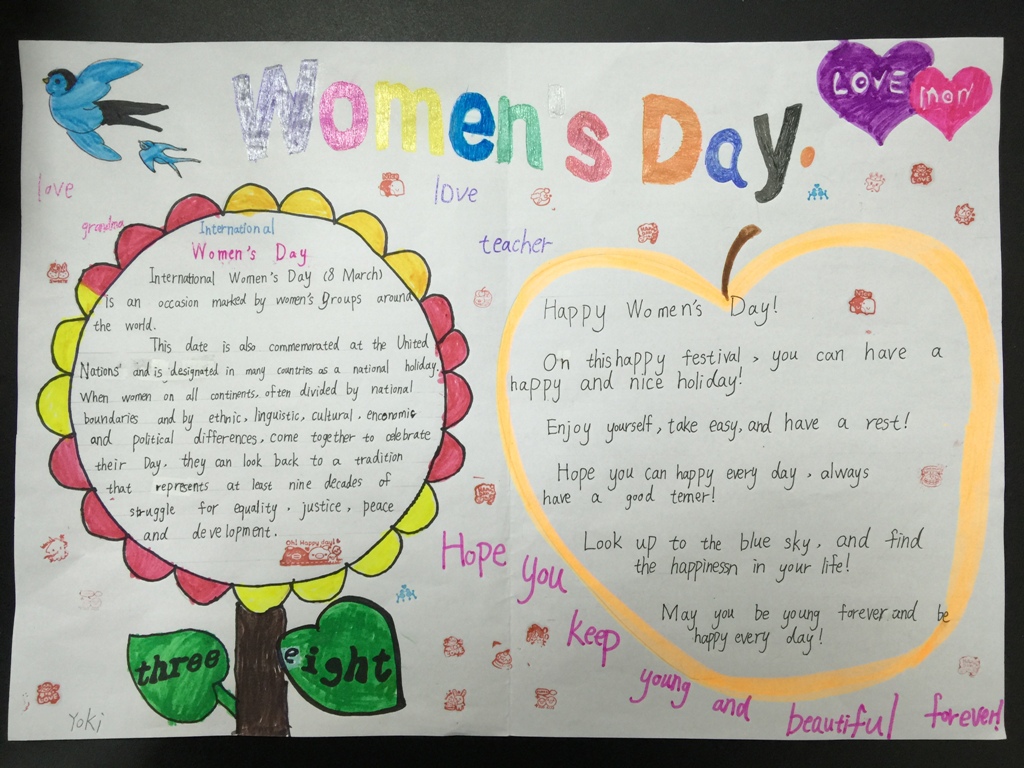 Women's Day.
LOVE
mom
love
love
grandma
teacher
International
Women's Day
International Women's Day (8 March)
is an occasion marked by women's groups around
the world.
This date is also commemorated at the United
Nations' and is designated in many countries as a national holiday.
When women on all continents, often divided by national
boundaries and by ethnic, linguistic, cultural, enconomic
and political differences, come together to celebrate
their Day, they can look back to a tradition
that represents at least nine decades of
struggle for equality, justice, peace
and development.
Oh! Happy day!
three eight
Yoki
Happy Women's Day!
On this happy festival, you can have a
happy and nice holiday!
Enjoy yourself, take easy, and have a rest!
Hope you can happy every day, always
have a good temer!
Look up to the blue sky, and find
the happinessn in your life!
May you be young forever and be
happy every day!
Hope you
keep
young and
beautiful forever!